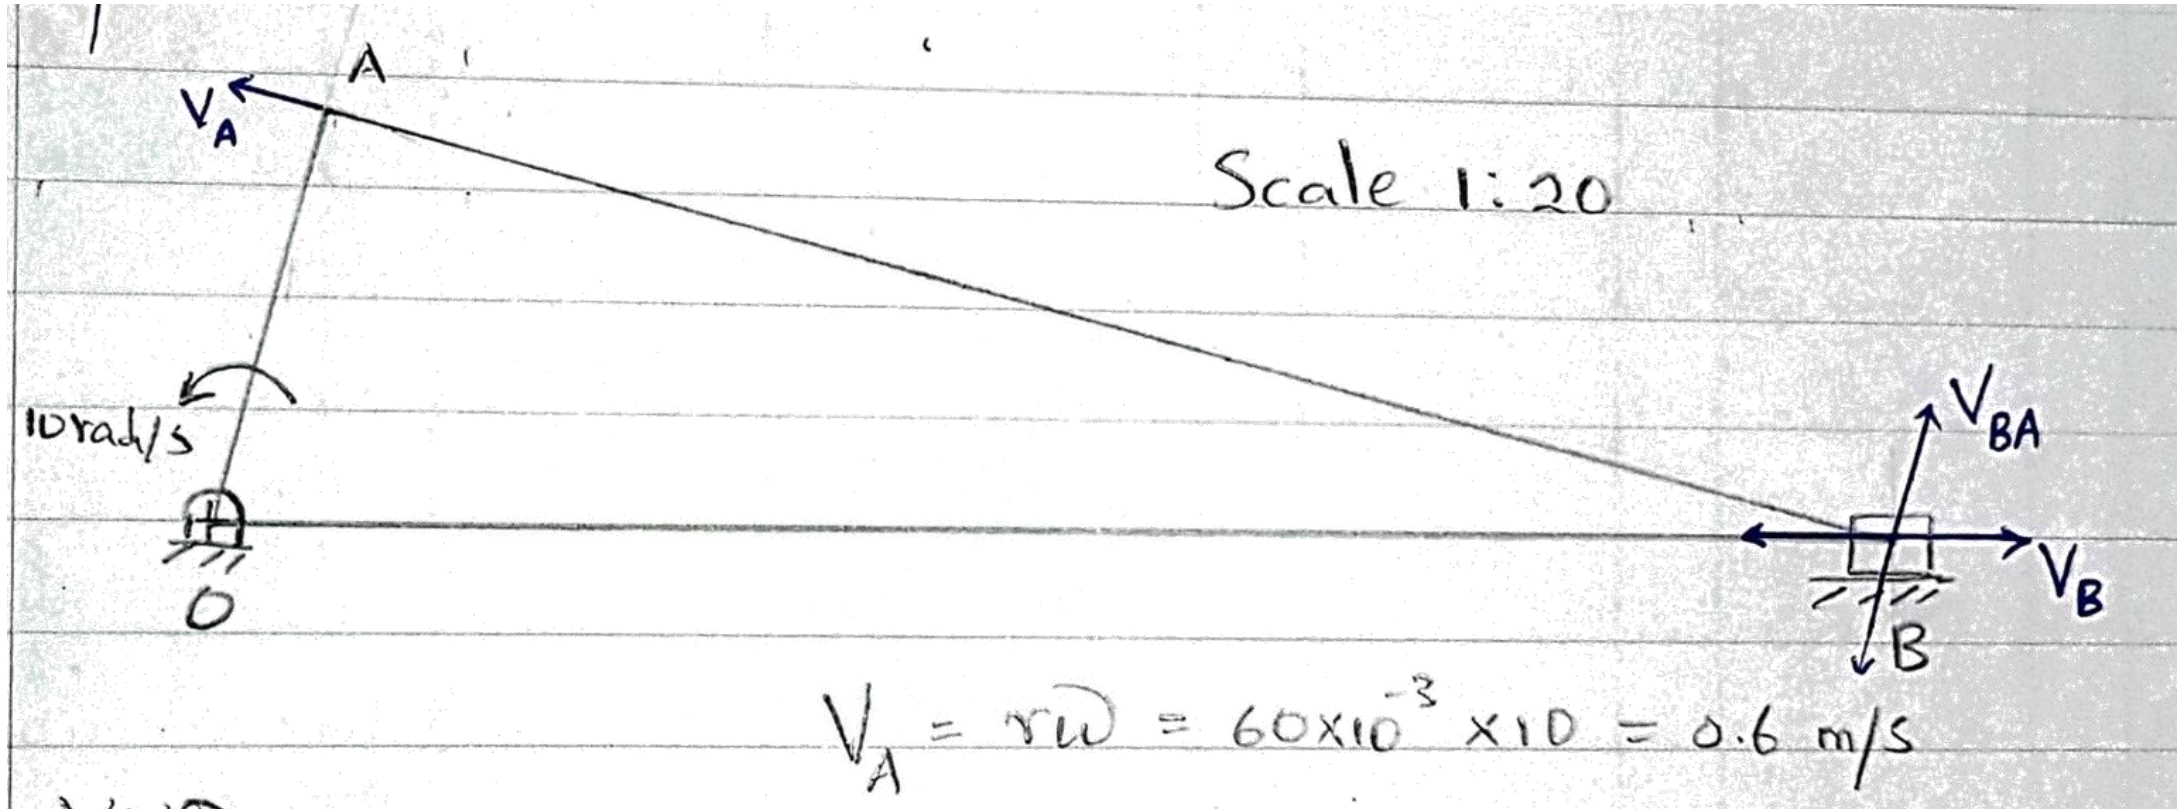 A
V_A
Scale 1:20
10 rad/s
V_BA
V_B
O
B
V_A = rω = 60×10⁻³ ×10 = 0.6 m/s